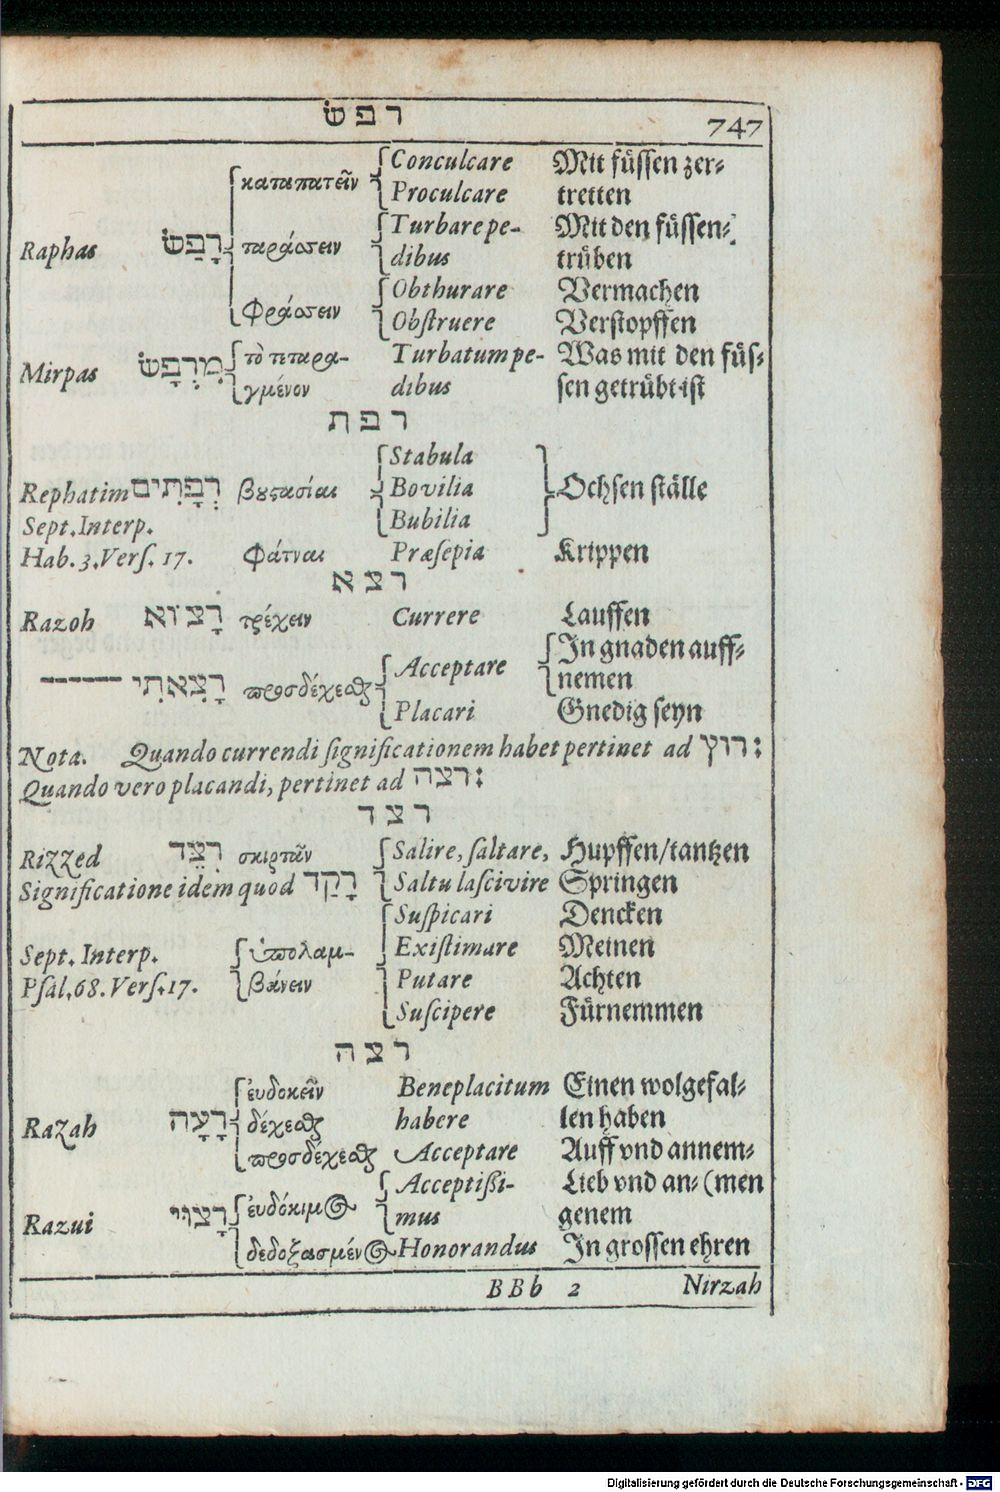 רפשׂ 747
καταπατεῖν Conculcare Mit füssen zer-
Proculcare tretten
Raphas רָפַשׂ ταράσσειν Turbare pe- Mit den füssen
dibus trüben
Φράσσειν Obthurare Vermachen
Obſtruere Verſtopffen
Mirpas מִרְפָּשׂ τὸ τεταρα- Turbatum pe- Was mit den füſ-
γμένον dibus ſen getrübt iſt
רפת
Stabula
Rephatim רְפָתִים βουστασίαι Bovilia Ochſen ſtälle
Sept. Interp. Bubilia
Hab. 3. Verſ. 17. Φάτναι Præſepia Krippen
רצא
Razoh רָצוֹא τρέχειν Currere Lauffen
In gnaden auff-
רָצִאתִי προσδέχεσθαι Acceptare nemen
Placari Gnedig ſeyn
Nota. Quando currendi ſignificationem habet pertinet ad רוץ:
Quando vero placandi, pertinet ad רצה:
רצד
Rizzed רִצֵּד σκιρτᾶν Salire, ſaltare, Hupffen/tantzen
Significatione idem quod רָקַד Saltu laſcivire Springen
Suſpicari Dencken
Sept. Interp. ὑπολαμ- Exiſtimare Meinen
Pſal. 68. Verſ. 17. βάνειν Putare Achten
Suſcipere Fürnemmen
רצה
εὐδοκεῖν Beneplacitum Einen wolgefal-
Razah רָצָה δέχεσθαι habere len haben
προσδέχεσθαι Acceptare Auff vnd annem-
Acceptißi- Lieb vnd an- (men
Razui רָצוּי εὐδόκιμος mus genem
δεδοξασμένος Honorandus In groſſen ehren
BBb 2 Nirzah
Digitalisierung gefördert durch die Deutsche Forschungsgemeinschaft - DFG